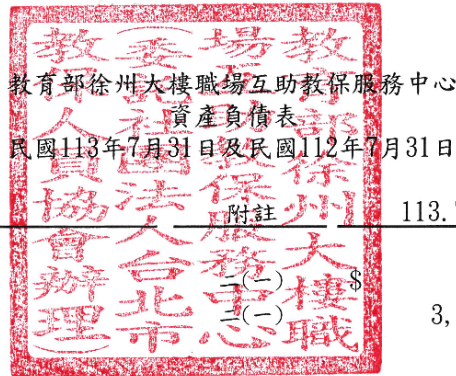 教育部徐州大樓職場互助教保服務中心
資產負債表
民國113年7月31日及民國112年7月31日
附註 113.
二(一) $
二(一) 3,
教育部徐州大樓職
場互助教保服務中心
(委託社團法人台北市
教保人員協會辦理)